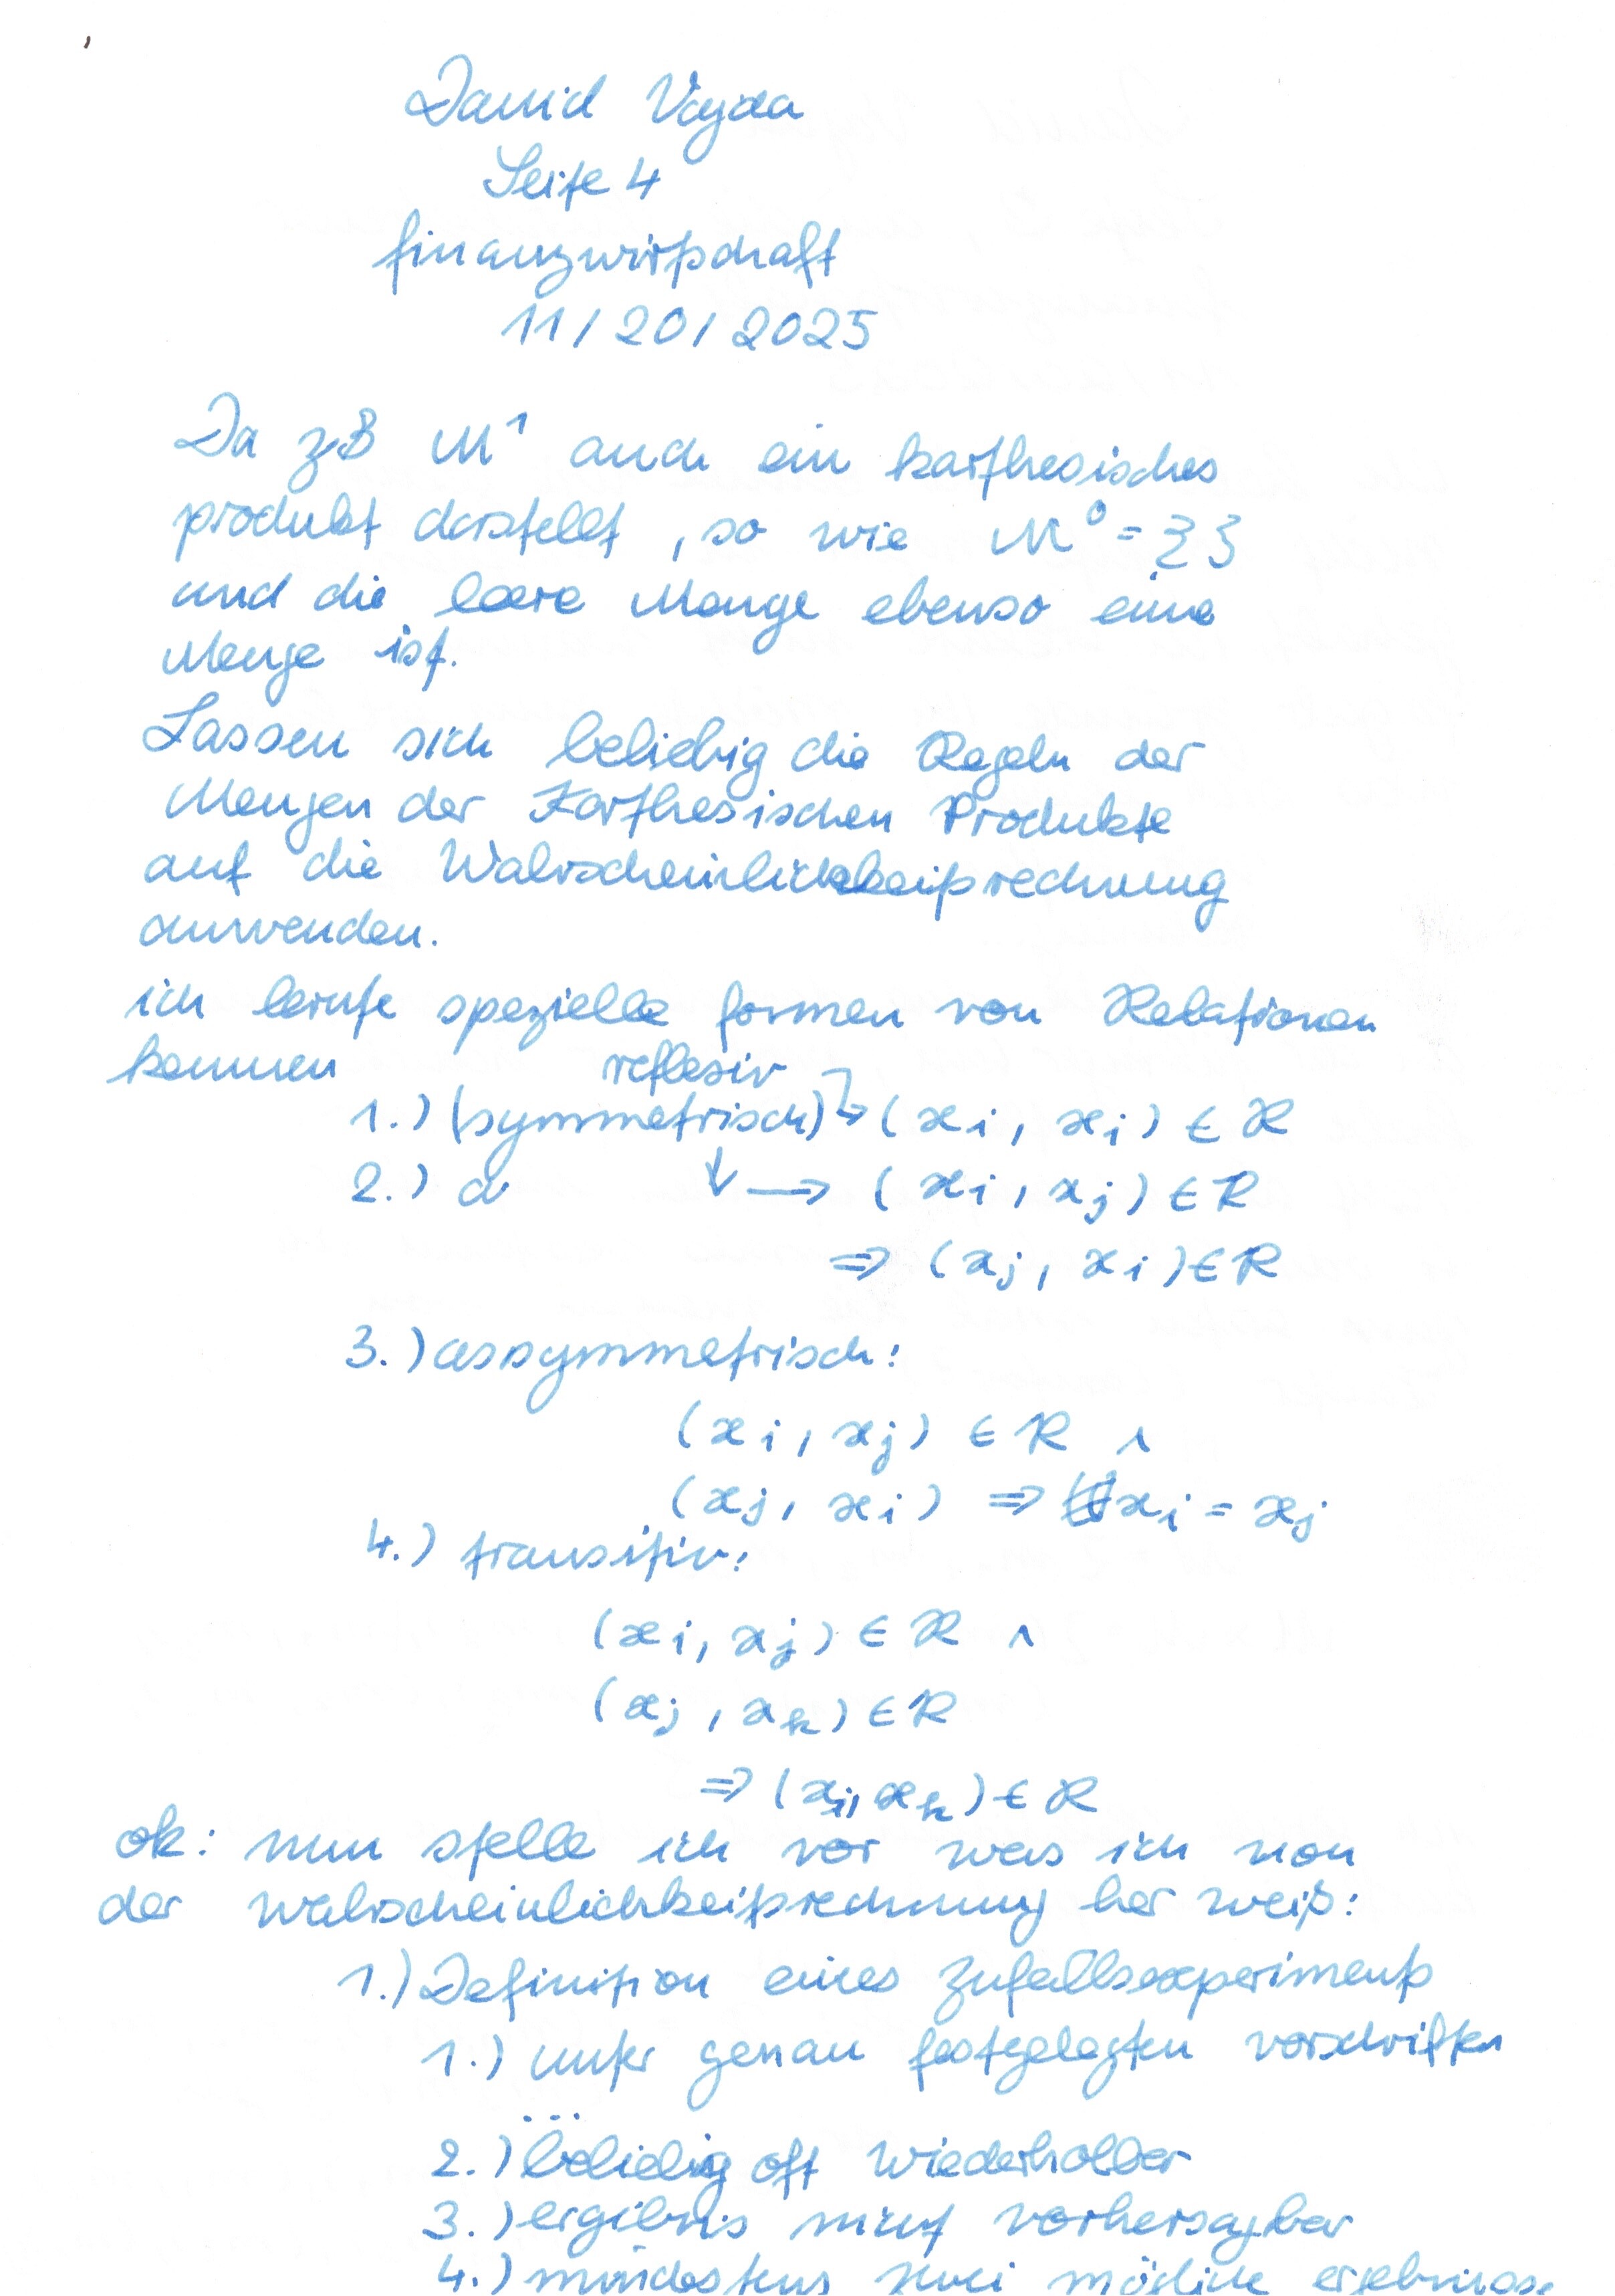 David Vajda
Seite 4
finanzwirtschaft
11/20/2025
Da zB M¹ auch ein karthesisches
produkt darstellt, so wie M⁰ = {}
und die leere Menge ebenso eine
Menge ist.
Lassen sich beliebig die Regeln der
Mengen der Karthesischen Produkte
auf die Wahrscheinlichkeitsrechnung
anwenden.
ich lernte spezielle formen von Relationen
kennen
reflexiv
1.) (symmetrisch) ↳ (xi, xi) ∈ R
2.) a ↓ → (xi, xj) ∈ R
⇒ (xj, xi) ∈ R
3.) assymmetrisch:
(xi, xj) ∈ R ∧
(xj, xi) ⇒ xi = xj
4.) transitiv:
(xi, xj) ∈ R ∧
(xj, xk) ∈ R
⇒ (xi, xk) ∈ R
ok: nun stelle ich vor was ich von
der Wahrscheinlichkeitsrechnung her weiß:
1.) Definition eines Zufallsexperiments
1.) unter genau festgelegten vorschriften
...
2.) beliebig oft wiederholbar
3.) ergibnis nicht vorhersagbar
4.) mindestens zwei möglich ergebnisse